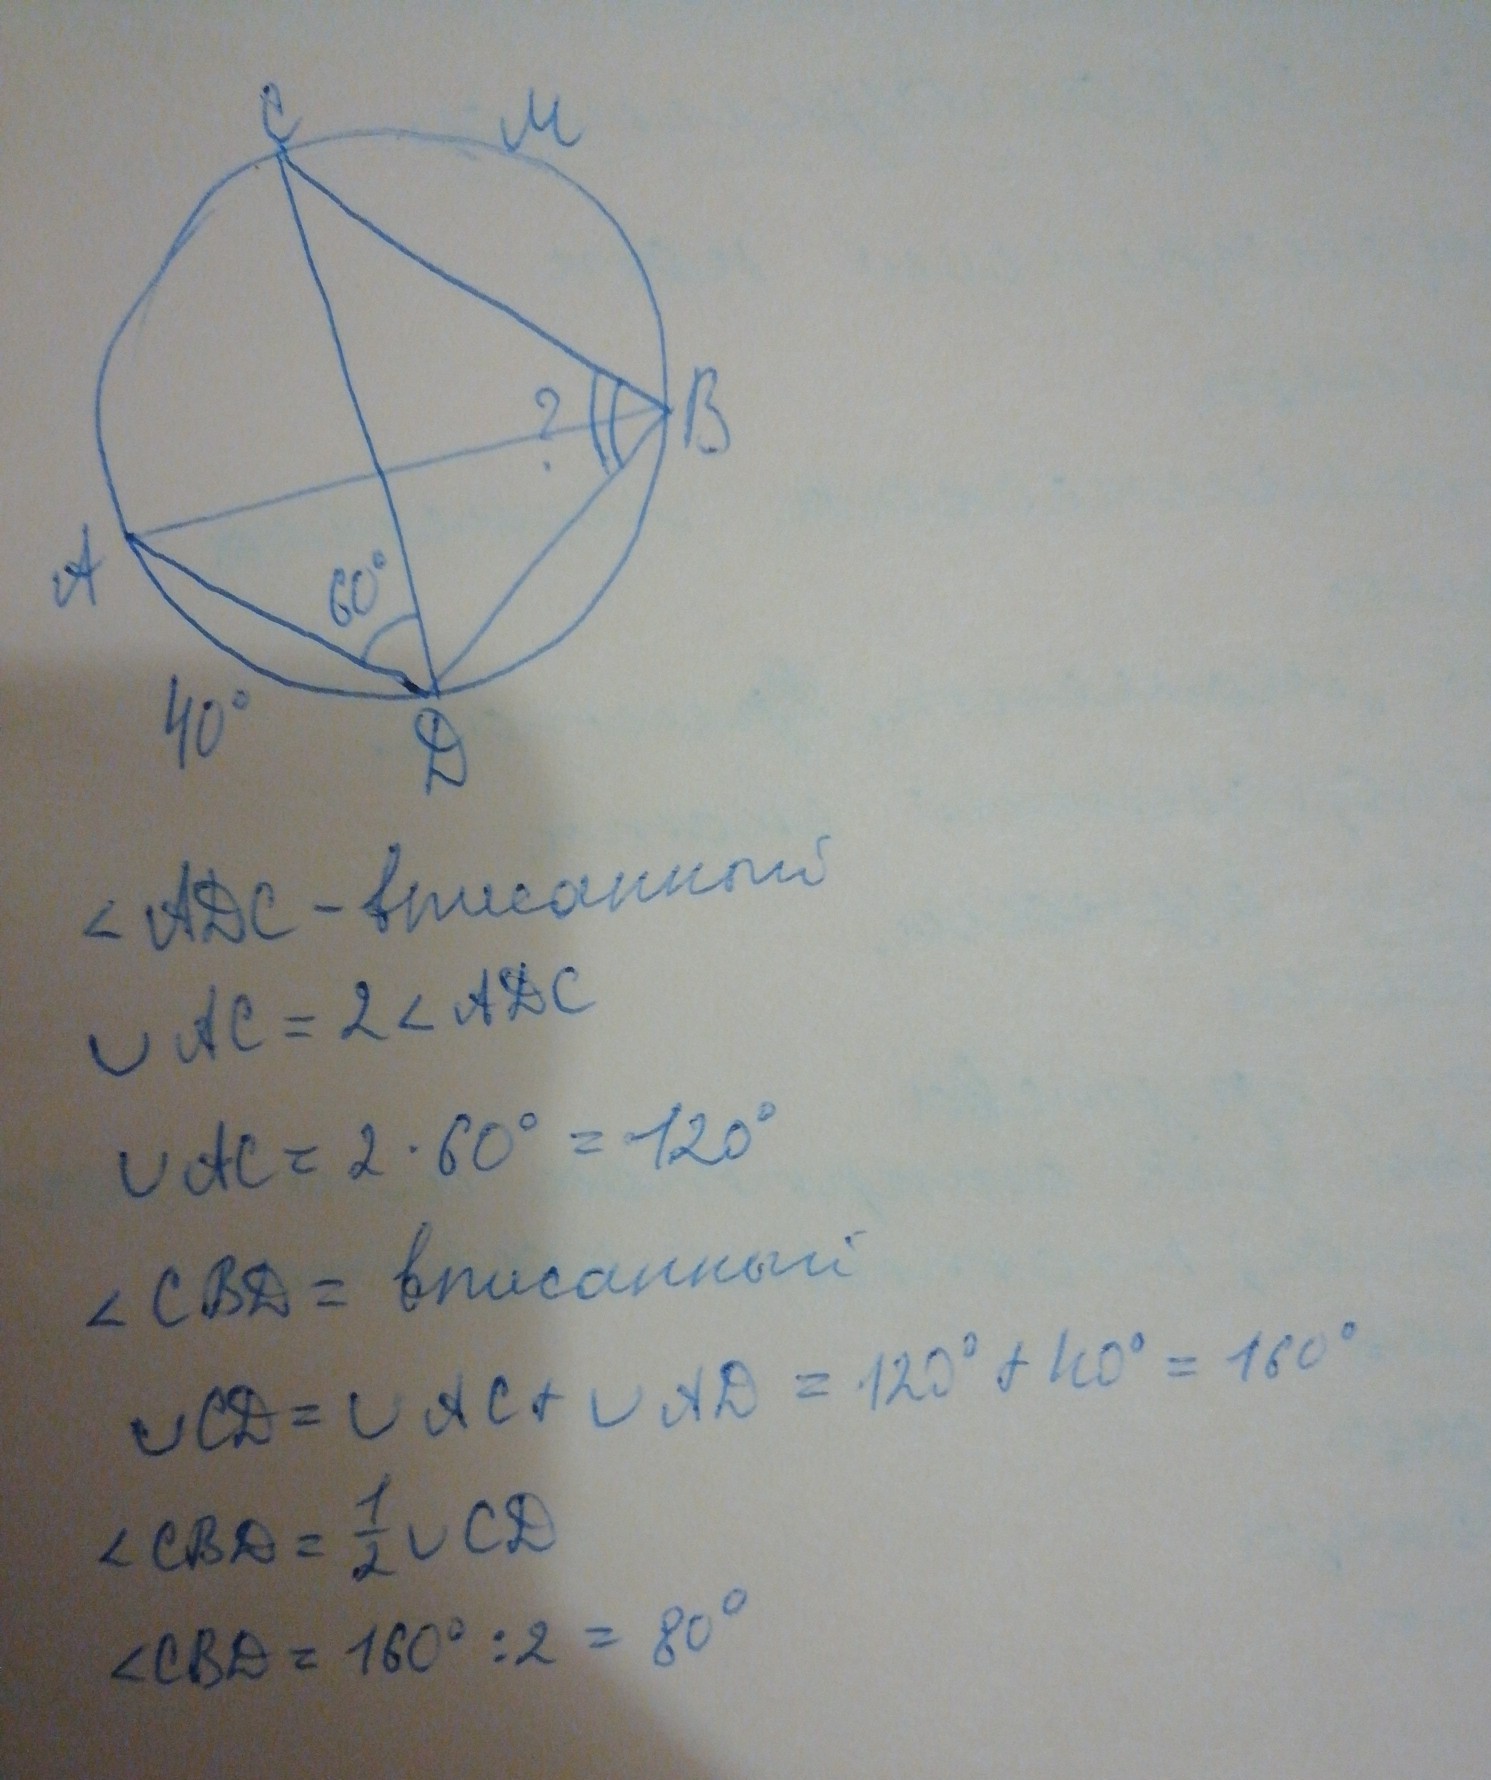 C M
?
B
A
60°
40°
D
< ADC - вписанный
∪ AC = 2 < ADC
∪ AC = 2 · 60° = 120°
< CBD = вписанный
∪ CD = ∪ AC + ∪ AD = 120° + 40° = 160°
< CBD = 1/2 ∪ CD
< CBD = 160° : 2 = 80°